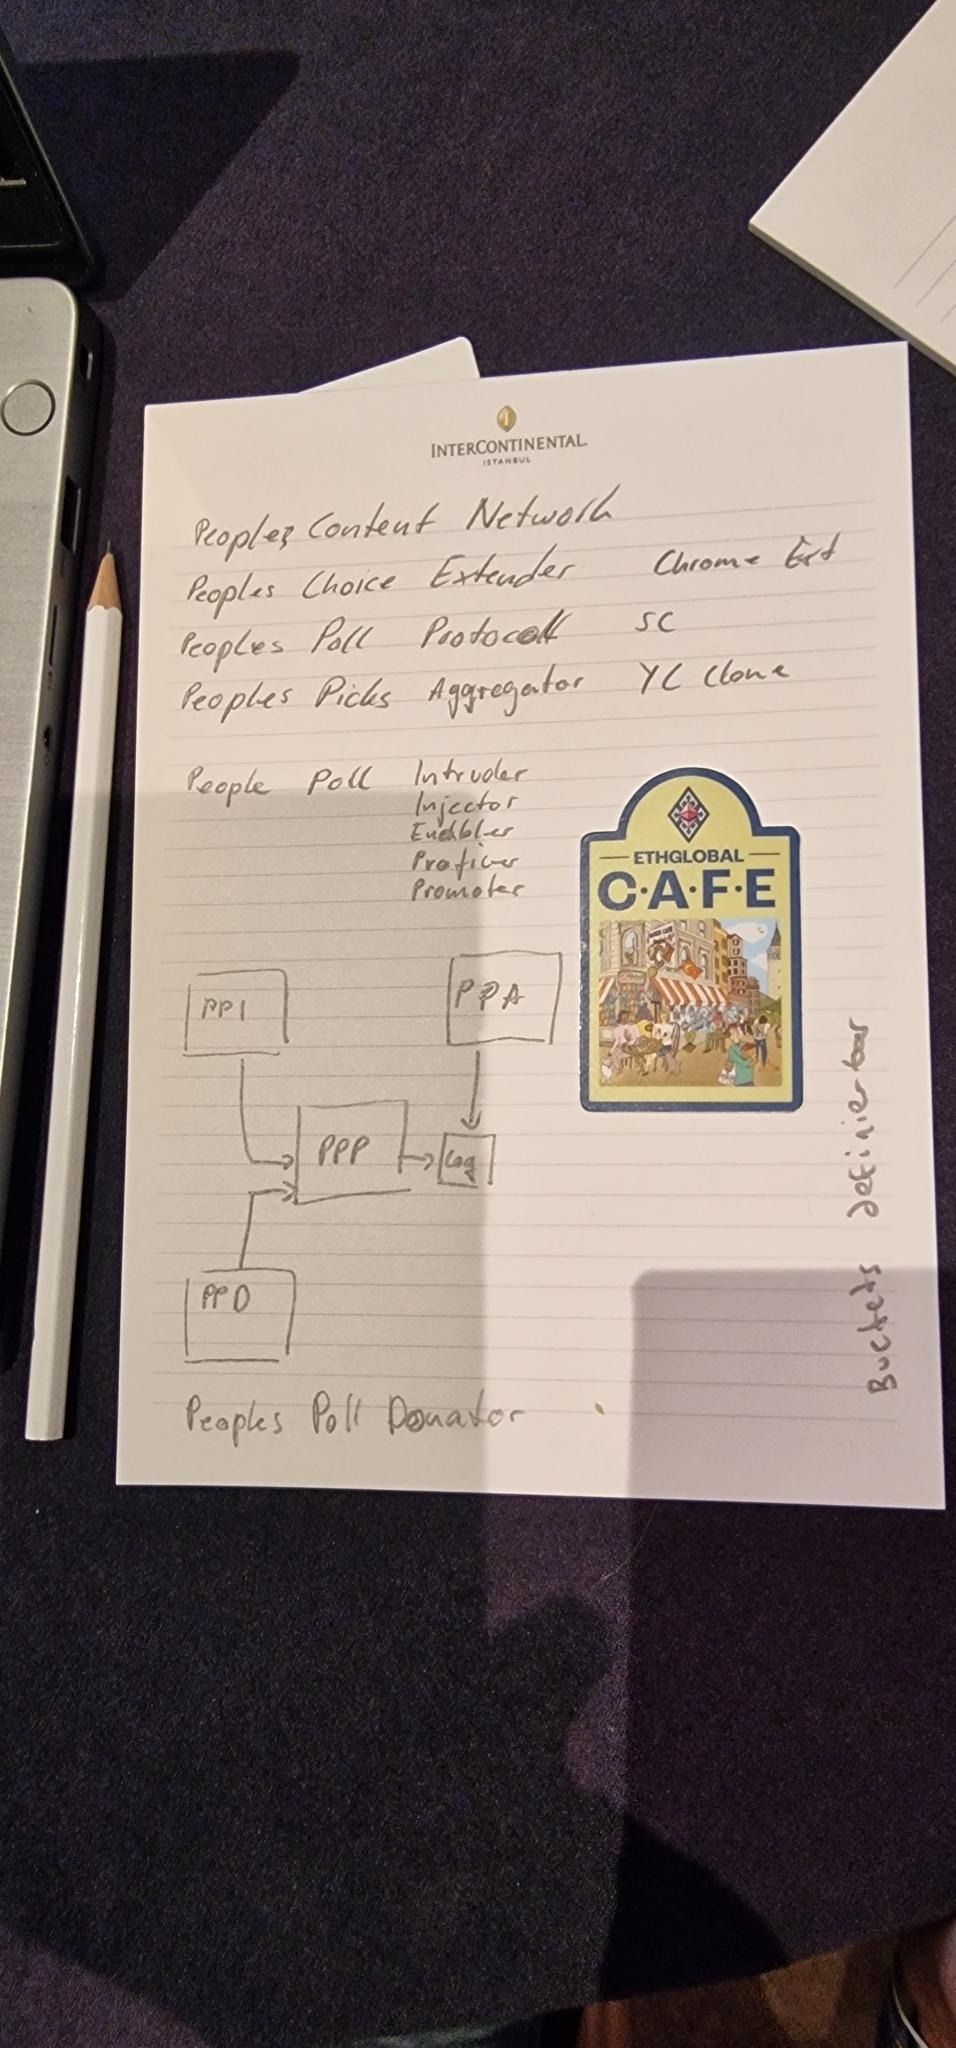 INTERCONTINENTAL
ISTANBUL
Peoples Content Network
Peoples Choice Extender Chrome Ext
Peoples Poll Protocoll SC
Peoples Picks Aggregator YC Clone
People Poll Intruder
Injector
Enabler
Promoter
ETHGLOBAL
C·A·F·E
PPI
PPA
PPP
Log
PPD
Peoples Poll Donator
Buckets definierbar